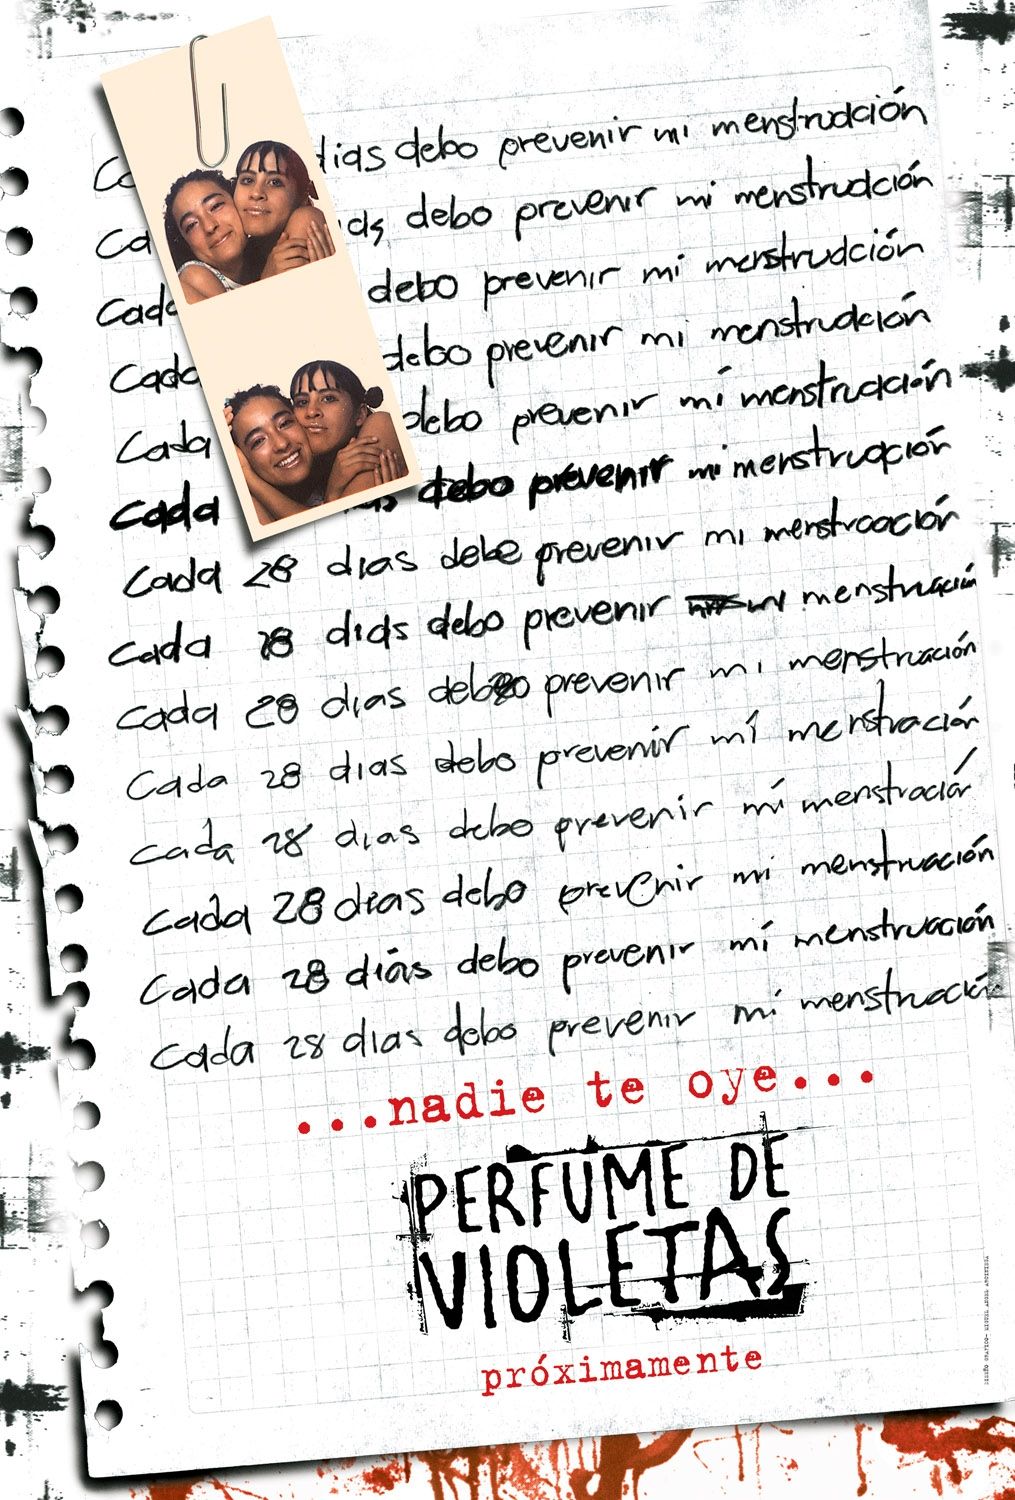 días debo prevenir mi menstrudción
debo prevenir mi menstrudción
debo prevenir mi menstrudción
Cada debo prevenir mi menstrudción
Cada debo prevenir mi menstruación
Cada debo prevenir mi menstruación
Cada 28 dias debe prevenir mi menstruoción
Cada 28 dias debo prevenir menstruación
Cada 28 dias debo prevenir mi menstruación
Cada 28 dias debo prevenir mí menstruación
Cada 28 dias debo prevenir mi menstruación
Cada 28 dias debo prevenir mi menstruación
Cada 28 días debo prevenir mí menstruación
Cada 28 dias debo prevenir mi menstruació
...nadie te oye...
PERFUME DE
VIOLETAS
próximamente